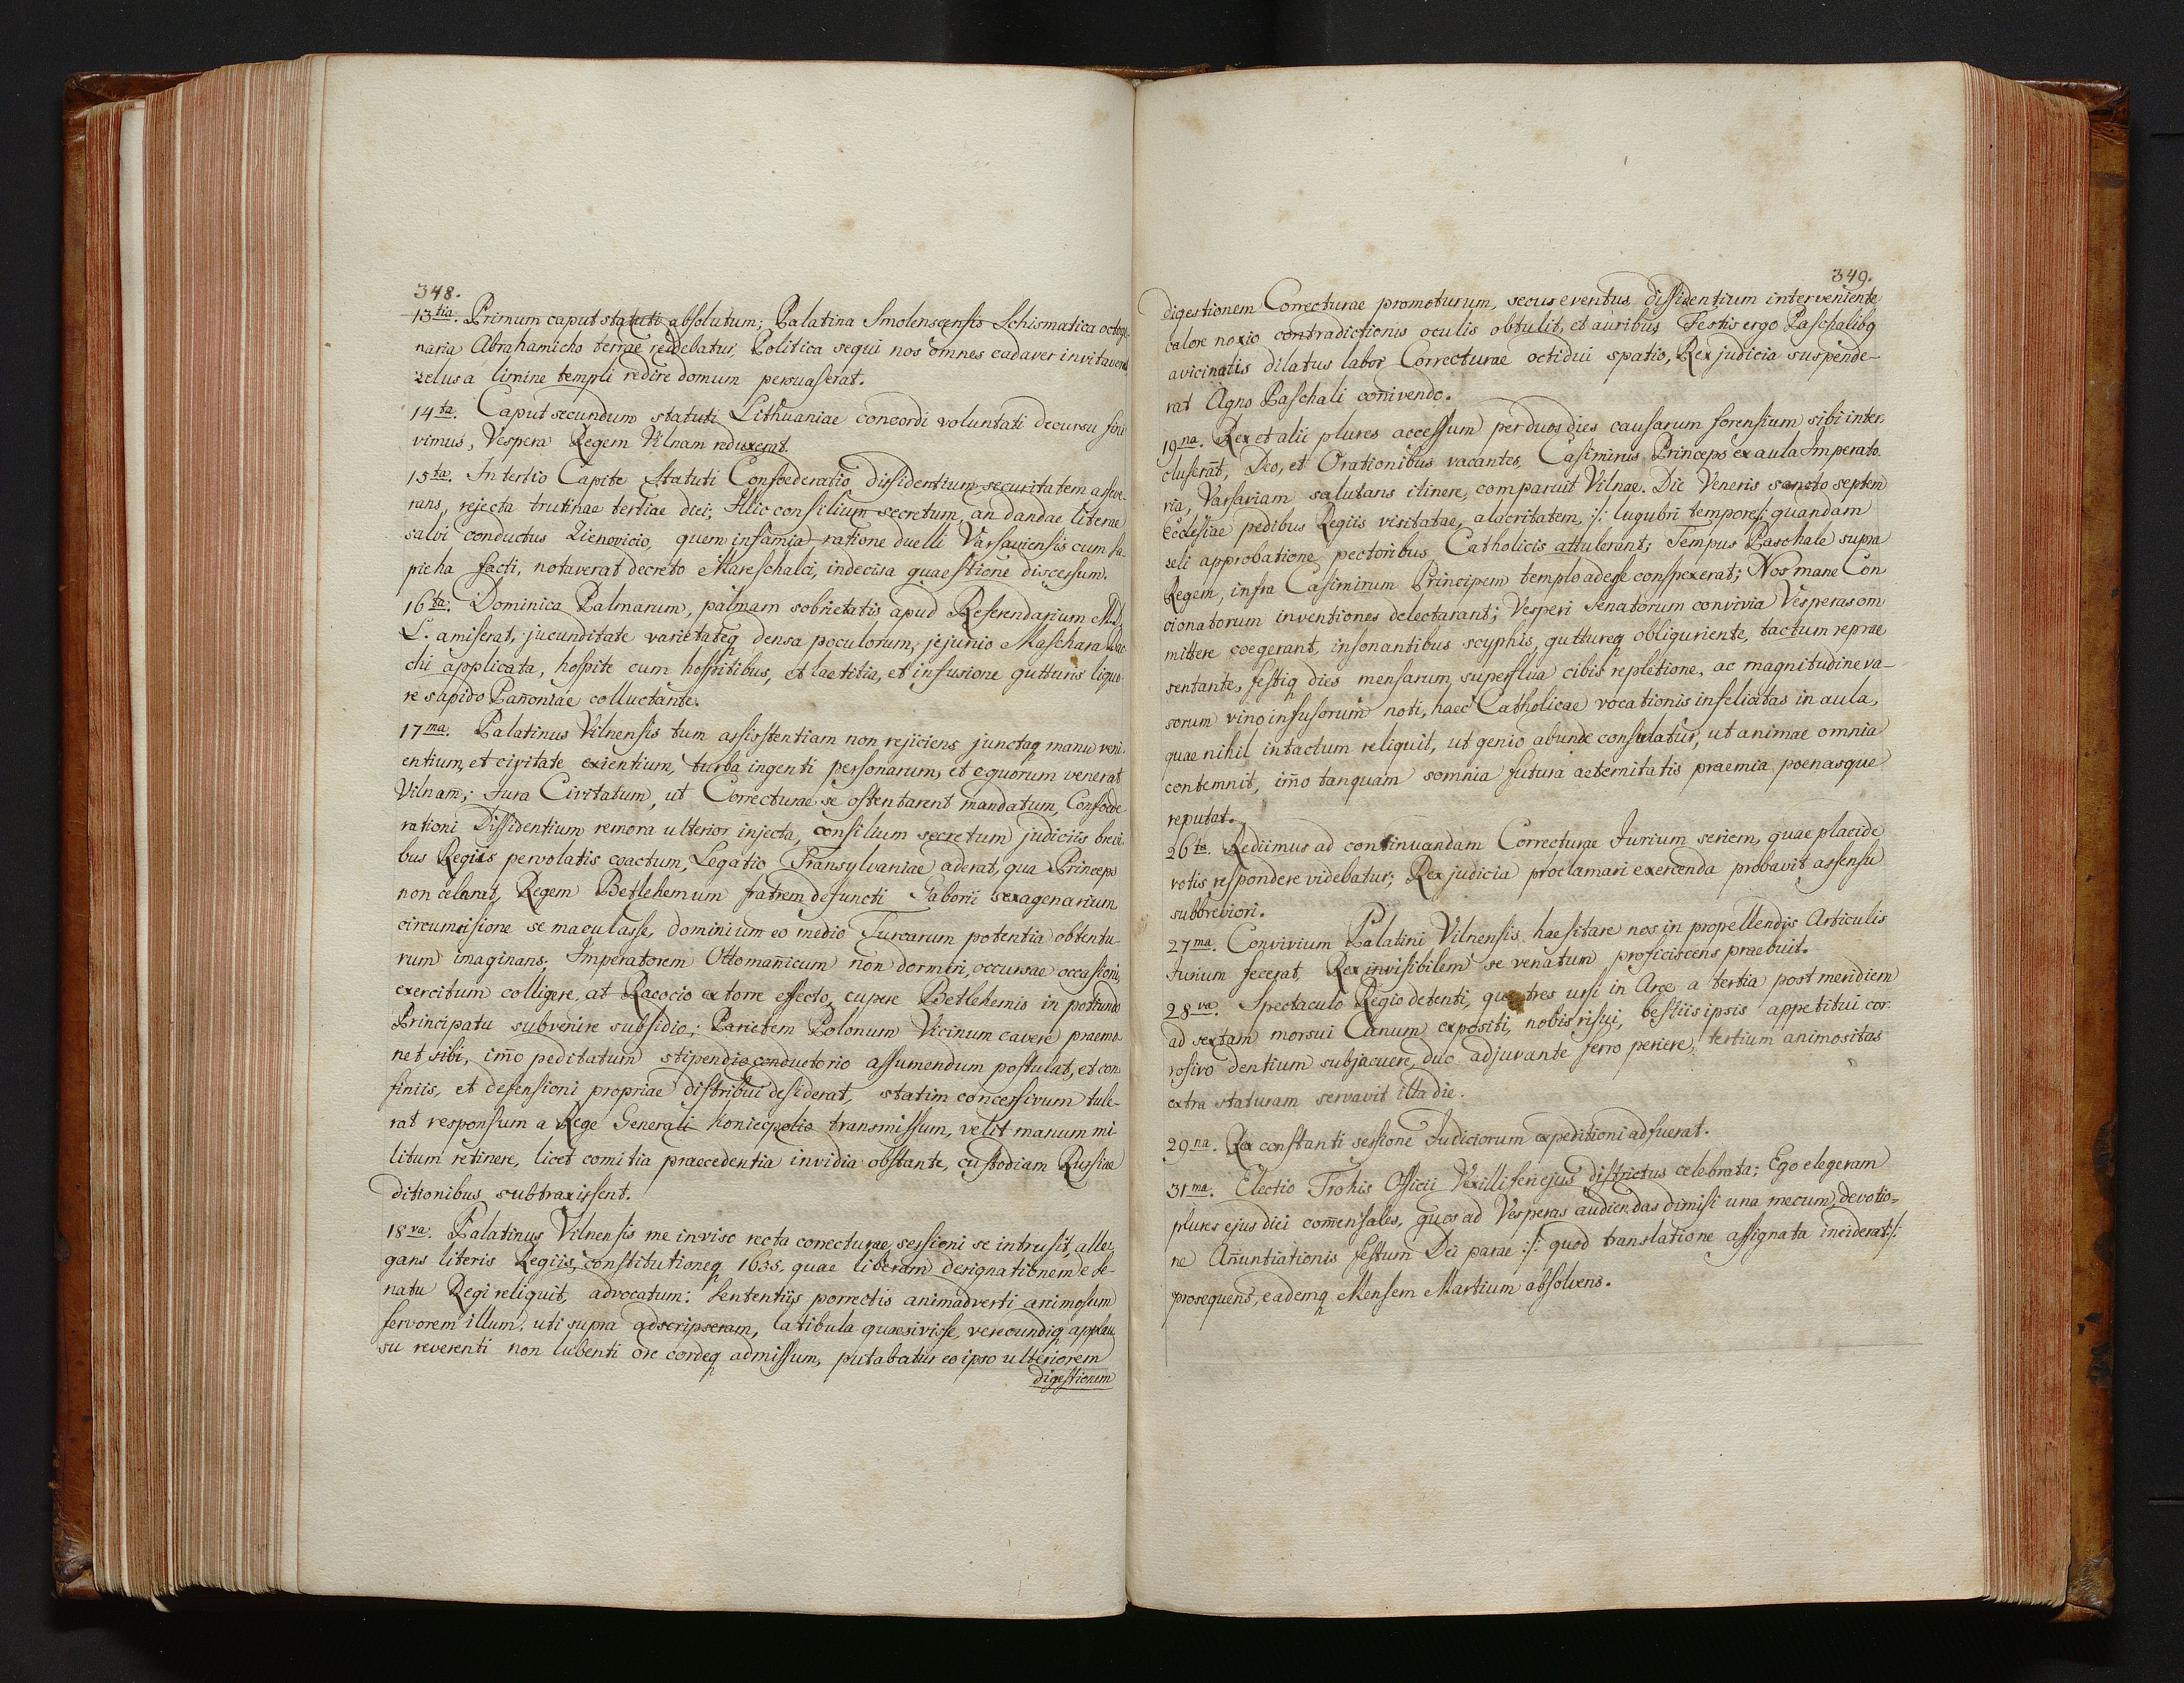 348.
13tia. Primum caput statuti absolutum; Palatina Smolenscensis Schismatica octoge
naria Abrahamicho terrae reddebatur, Politica sequi nos omnes cadaver invitaverat,
zelus a limine templi redire domum persuaserat.
14ta. Caput secundum statuti Lithuaniae concordi voluntati decursu fini
vimus, Vespera Regem Vilnam reduxerat.
15ta. In tertio Capite Statuti Confoederatio dissidentium securitatem asseve-
rans, rejecta trutinae tertiae diei; Illic consilium secretum, an dandae literae
salvi conductus Zienovicio, quem infamia ratione duelli Varsaviensis cum Sa
picha facti, notaverat decreto Mareschalci, indecisa quaestione discessum.
16ta. Dominica Palmarum, palmam sobrietatis apud Referendarium M. D.
L. amiserat, jucunditate varietateq densa poculorum, jejunio Maschara Bac
chi applicata, hospite cum hospitibus, et laetitia, et infusione gutturis liquo
re sapido Pan̄oniae colluctante.
17ma. Palatinus Vilnensis tum assisstentiam non rejiciens junctaq manu veni-
entium, et civitate exientium, turba ingenti personarum, et equorum venerat
Vilnam; Jura Civitatum, ut Correcturae se ostentarent mandatum, Confoede
rationi Dissidentium remora ulterior injecta, consilium secretum judiciis brevi
bus Regiis pervolatis coactum, Legatio Transylvaniae aderat, qua Princeps
non celarat, Regem Betlehemum fratrem defuncti Gaborii sexagenarium
circumcisione se maculasse, dominium eo medio Turcarum potentia obtentu-
rum imaginans; Imperatorem Ottoman̄icum non dormiri, occursae occasioni,
exercitum colligere, at Racocio extorre effecto, cupere Betlehemio in potiundo
Principatu subvenire subsidio; Parietem Polonum Vicinum cavere praemo-
net sibi, im̄o peditatum stipendio conductorio assumendum postulat, et con
finiis, et defensioni propriae distribui desiderat, statim concessivum tule-
rat responsum a Rege Generali Koniecpolio transmissum, velit manum mi-
litum retinere, licet comitia praecedentia invidia obstante, custodiam Russiae
ditionibus subtraxissent.
18va. Palatinus Vilnensis me inviso recta correcturae sessioni se intrusit, alle-
gans literis Regiis, constitutioneq 1635, quae liberam designationem e Se-
natu Regi reliquit, advocatum: Sententiis porrectis animadverti animosum
fervorem illum, uti supra adscripseram, latibula quaesivisse, verecundiq applau
su reverenti non lubenti ore cordeq admissum, putabatur eo ipso ulteriorem
digestionem
349.
digestionem Correcturae promoturum, secus eventus dissidentium interveniente
calore noxio contradictionis oculis obtulit, et auribus. Festis ergo Paschalibq
avicinatis dilatus labor Correcturae octidui spatio, Rex judicia suspende-
rat Agno Paschali con̄ivendo.
19na. Rex et alii plures accessum per duos dies causarum forensium sibi inter-
cluserāt, Deo, et Orationibus vacantes, Casimirus Princeps ex aula Imperato-
ria, Varsaviam salutans itinere, comparuit Vilnae. Die Veneris sancto septem
Ecclesiae pedibus Regiis visitatae, alacritatem, :/: lugubri tempore :/: quandam
zeli approbatione pectoribus Catholicis attulerant; Tempus Paschale supra
Regem, infra Casimirum Principem templo adesse conspexerat; Nos mane Con
cionatorum inventiones delectarant; Vesperi Senatorum convivia Vesperas om
mittere coegerant, insonantibus scyphis, guttureq obliguriente, tactum reprae
sentante, festiq dies mensarum, superflua cibis repletione, ac magnitudine va-
sorum vino infusorum noti, haec Catholicae vocationis infelicitas in aula,
quae nihil intactum reliquit, ut genio abunde consulatur, ut animae omnia
contemnit, im̄o tanquam somnia futura aeternitatis praemia poenasque
reputat.
26ta. Rediimus ad continuandam Correcturae Jurium seriem, quae placide
votis respondere videbatur; Rex judicia proclamari exercenda probavit assensu
subbreviori.
27ma. Convivium Palatini Vilnensis haesitare nos in propellendis Articulis
Jurium fecerat, Rex invisibilem se venatum proficiscens praebuit.
28va. Spectaculo Regio detenti, quo tres ursi in Arce a tertia post meridiem
ad sextam morsui Canum expositi, nobis risui, bestiis ipsis appetitui cor-
rosivo dentium subjacuere, duo adjuvante ferro periere, tertium animositas
extra staturam servavit illa die.
29na. Rex constanti sessione Judiciorum expeditioni adfuerat.
31ma. Electio Trokis Officii Vexilliferi ejus districtus celebrata; Ego elegeram
plures ejus diei com̄ensales, quos ad Vesperas audiendas dimisi una mecum, devotio=
ne An̄untiationis festum Dei parae :/: quod translatione assignata inciderat :/:
prosequens, eademq Mensem Martium absolvens.